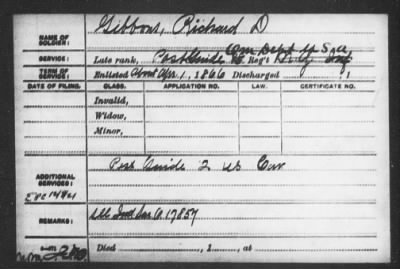 NAME OF SOLDIER: Gibbons, Richard D
Qm Dept U S a
SERVICE: Late rank, Post Guide Reg't Inf
TERM OF SERVICE: Enlisted About Apr. 1, 1866 Discharged , 1
DATE OF FILING. CLASS. APPLICATION NO. LAW. CERTIFICATE NO.
Invalid,
Widow,
Minor,
ADDITIONAL SERVICES: Post Guide 2 US Cav
REMARKS: See Ind Sur O. 17857
Died , 1 , at